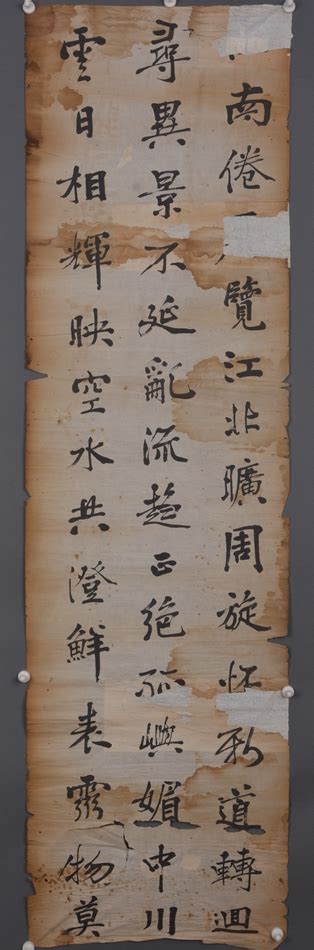 南倦覽江北曠周旋怀新道轉迴
尋異景不延亂流趨正絕孤嶼媚中川
雲日相輝映空水共澄鮮表靈物莫